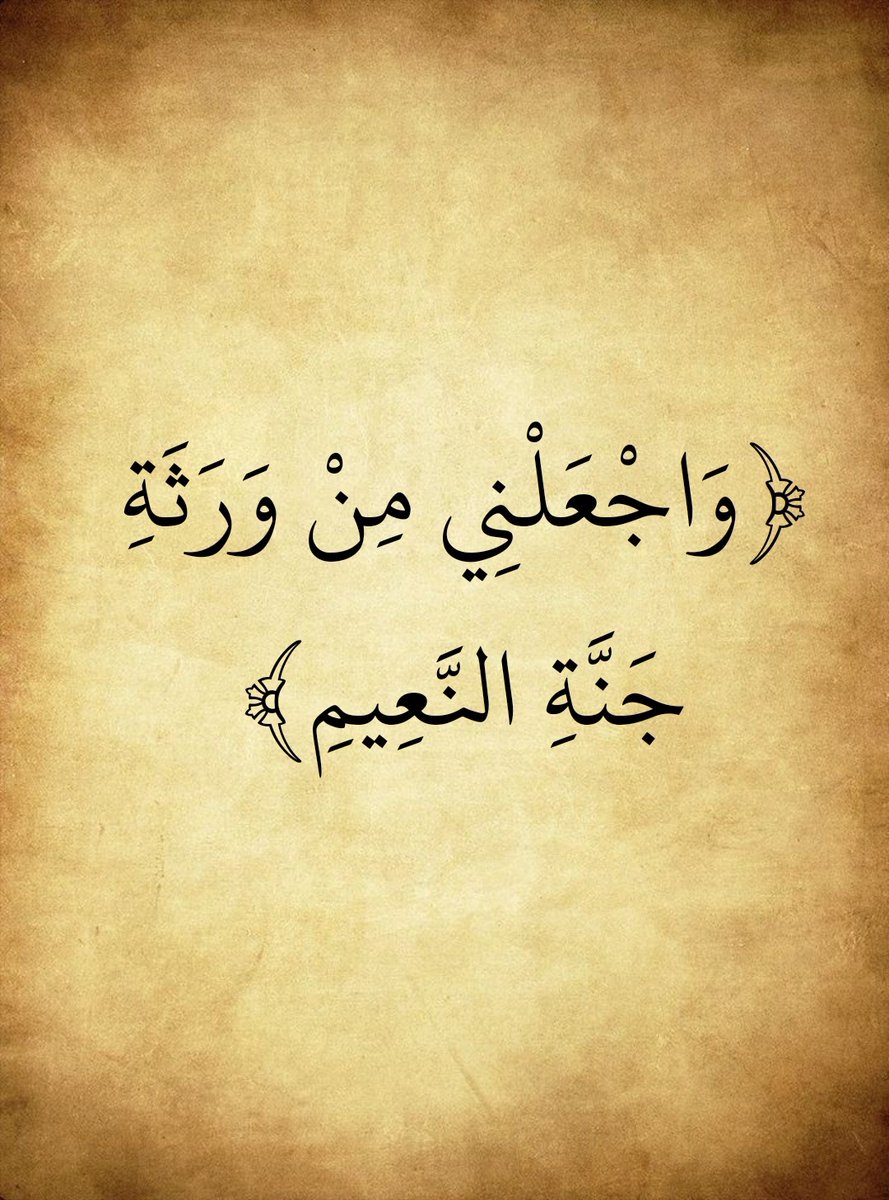 ﴿وَاجْعَلْنِي مِنْ وَرَثَةِ
جَنَّةِ النَّعِيمِ﴾